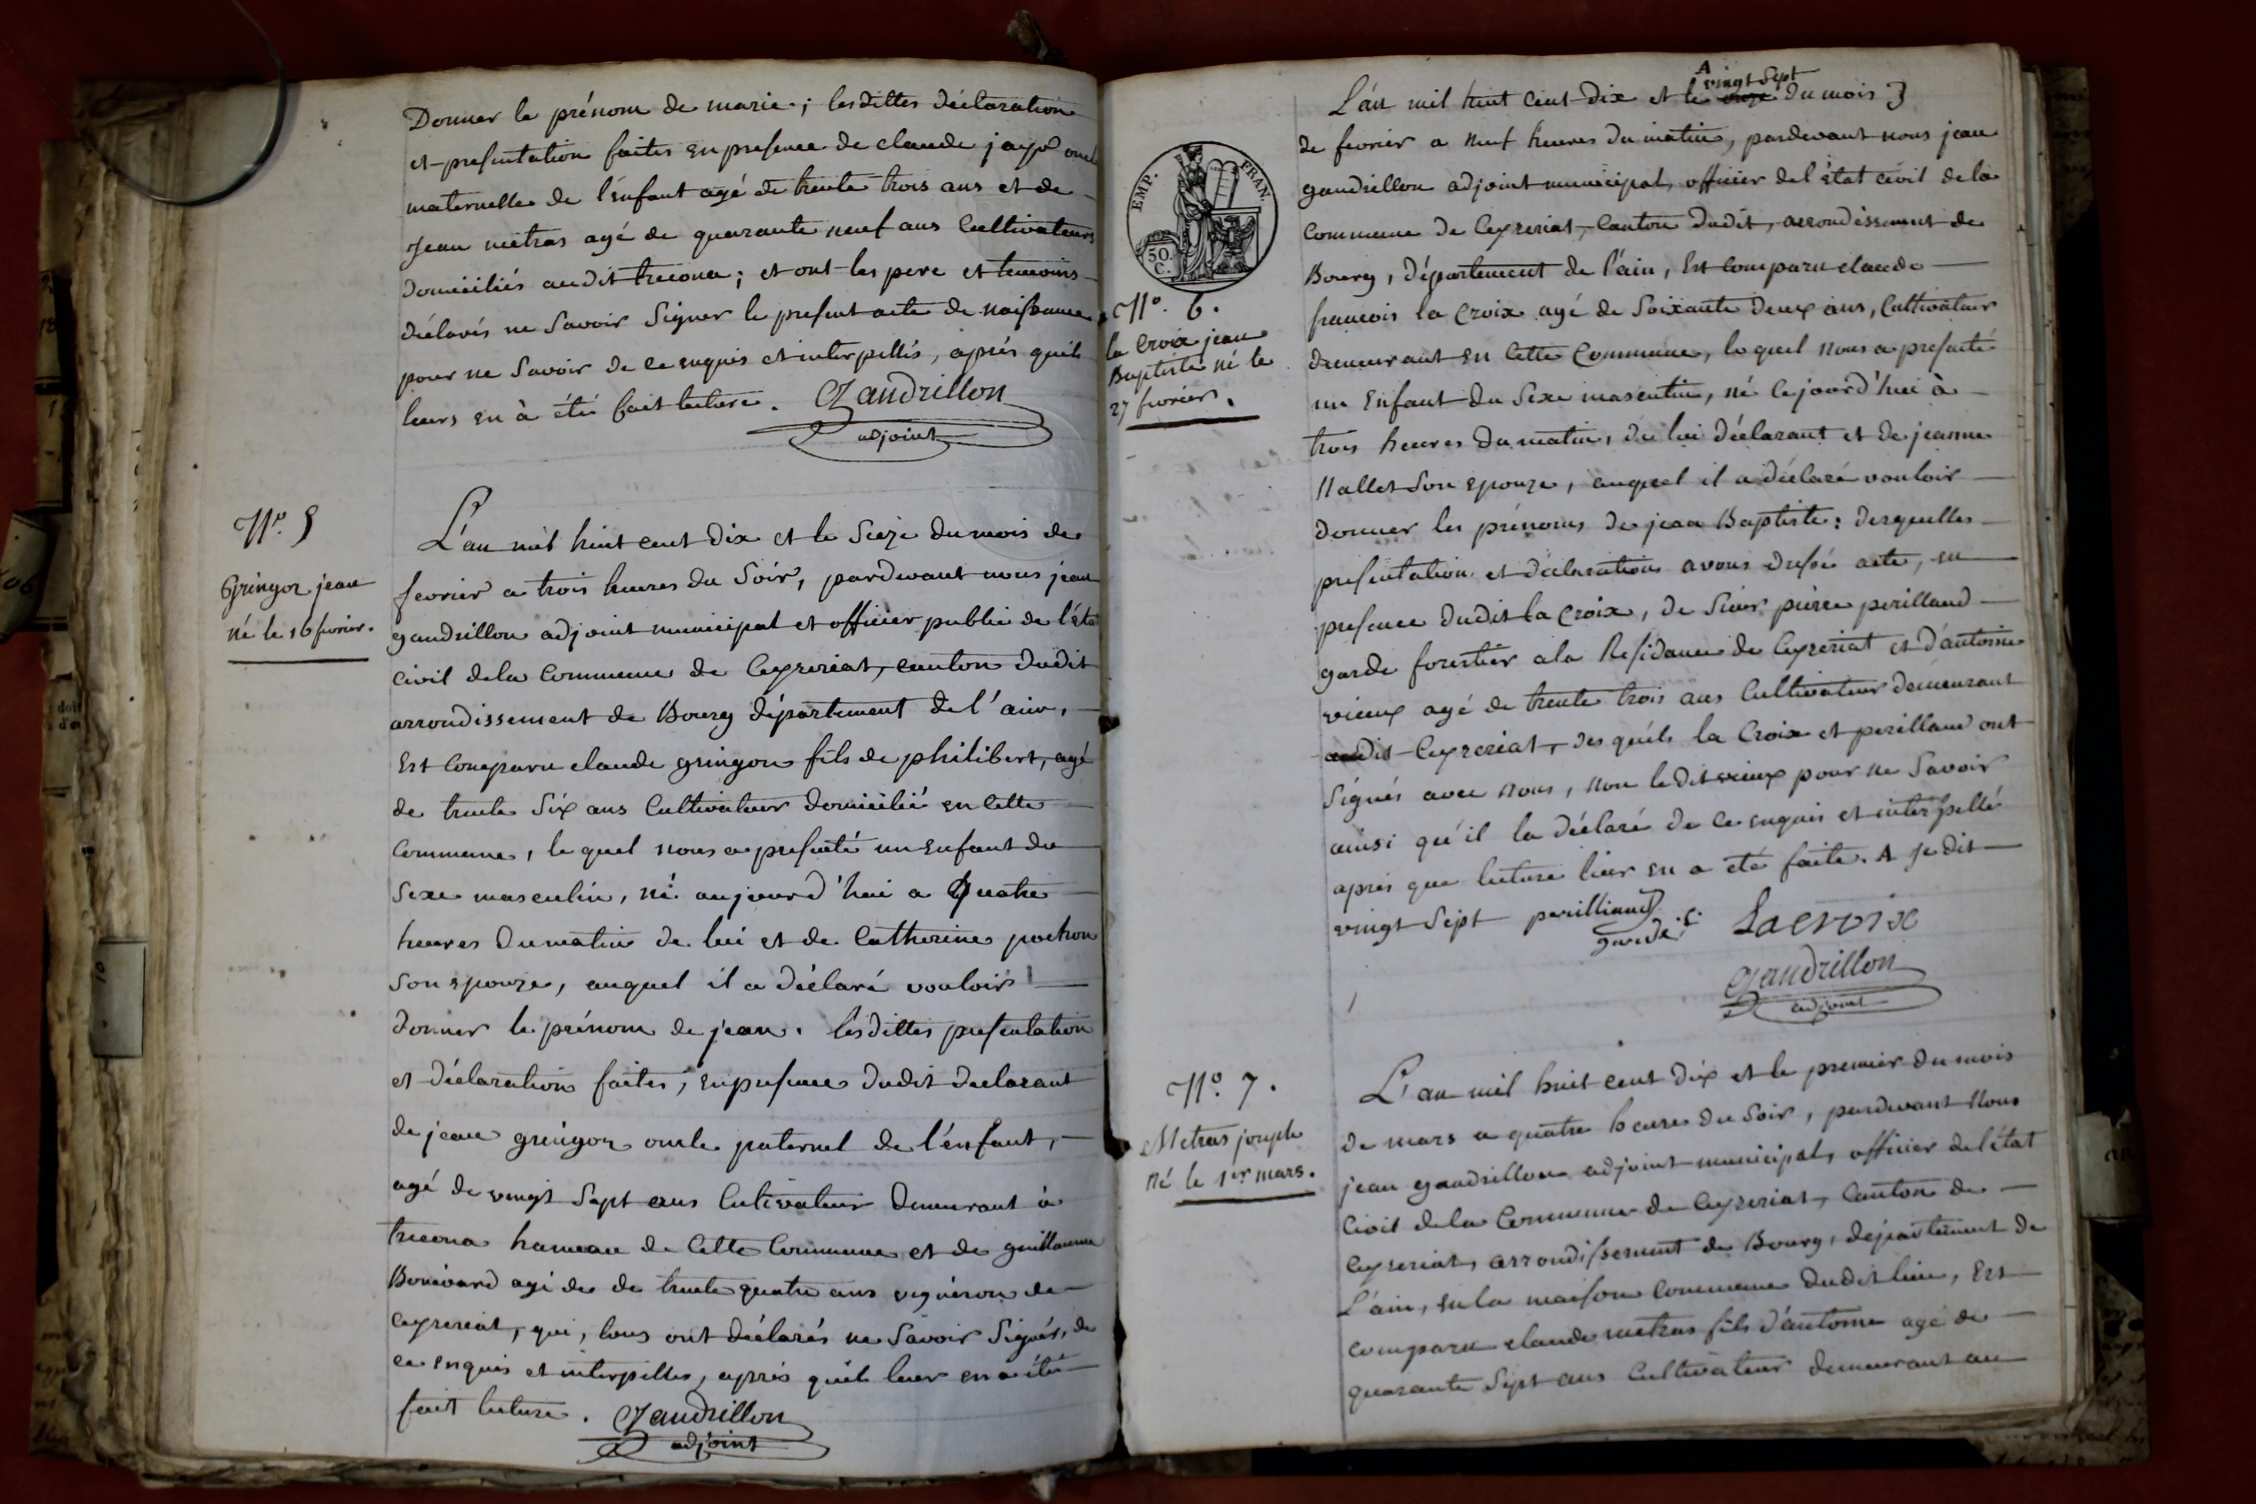 Donner le prénom de marie ; lesdittes déclaration
et presentation faites en presence de claude jayr oncle
maternelle de l'enfant agé de trente trois ans et de
Jean métras agé de quarante neuf ans Cultivateurs
domiciliés audit trecona ; et ont les pere et temoins
déclarés ne Savoir Signer le present acte de naissance
pour ne Savoir de ce enquis et interpellés, aprés qu'ils
leurs en à été fait lecture. Gandrillon
adjoint
N.º 5
Gringoz jean
né le 16 fevrier.
L'an mil huit cent dix et le Seize du mois de
fevrier a trois heures du Soir, pardevant nous jean
gandrillon adjoint municipal et officier public de l'état
civil dela Commune de Ceyzeriat, canton dudit
arrondissement de Bourg département de l'ain,
Est comparu claude gringoz fils de philibert, agé
de trente Six ans Cultivateur domicilié en Cette
Commune, le quel nous a presenté un Enfant du
Sexe masculin, né aujourd'hui a Quatre
heures du matin de lui et de Catherine pochon
Son epouze, auquel il a déclaré vouloir
donner le prénom de jean. lesdittes presentation
et déclaration faites, en presence dudit declarant
de jean gringoz oncle paternel de l'enfant,
agé de vingt Sept ans Cultivateur demeurant à
treconа hameau de Cette Commune et de guillaume
Bouvard agé de de trente quatre ans vigneron de
ceyzeriat, qui, tous ont déclarés ne Savoir Signér, de
ce enquis et interpellés, aprés qu'ils leur en a été
fait lecture. Gandrillon
adjoint
EMP. FRAN.
50 C.
N.º 6.
la Croix jean
Baptiste né le
27 fevrier.
A vingt Sept
L'an mil huit cent dix et le onze du mois
de fevrier a neuf heures du matin, pardevant nous jean
gandrillon adjoint municipal, officier del'état civil dela
Commune de Ceyzeriat, Canton dudit, arrondissement de
Bourg, département de l'ain, Est Comparu claude
francois la Croix agé de Soixante deux ans, Cultivateur
demeurant en Cette Commune, le quel nous a presenté
un Enfant du Sexe masculin, né Cejourd'hui à
trois heures du matin, de lui déclarant et de jeanne
Nallet Son epouze, auquel il a déclaré vouloir
donner les prénoms de jean Baptiste ; desquelles
presentation et déclaration avons dressé acte, en
presence dudit la Croix, de Sieur pierre perilland
garde forestier ala Residance de Ceyzeriat et d'antoine
vieux agé de trente trois ans Cultivateur demeurant
audit Ceyzeriat, des quels la Croix et perilland ont
Signés avec nous, non ledit vieux pour ne Savoir
ainsi qu'il la déclaré de ce enquis et interpellé
aprés que lecture lieur en a été faite. A Je dit
vingt Sept perilliand Lacroix
garde
Gandrillon
adjoint
N.º 7.
Metras joseph
né le 1er mars.
L'an mil huit cent dix et le premier du mois
de mars a quatre heures du Soir, pardevant Nous
jean gandrillon adjoint municipal, officier del'état
Civil dela Commune de Ceyzeriat, Canton de
Ceyzeriat, arrondissement de Bourg, département de
L'ain, en la maison Commune dudit lieu, Est
comparu claude metras fils d'antoine agé de
quarante Sept ans Cultivateur demeurant au